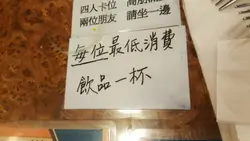 四人卡位
兩位朋友 請坐一邊
每位最低消費
飲品一杯